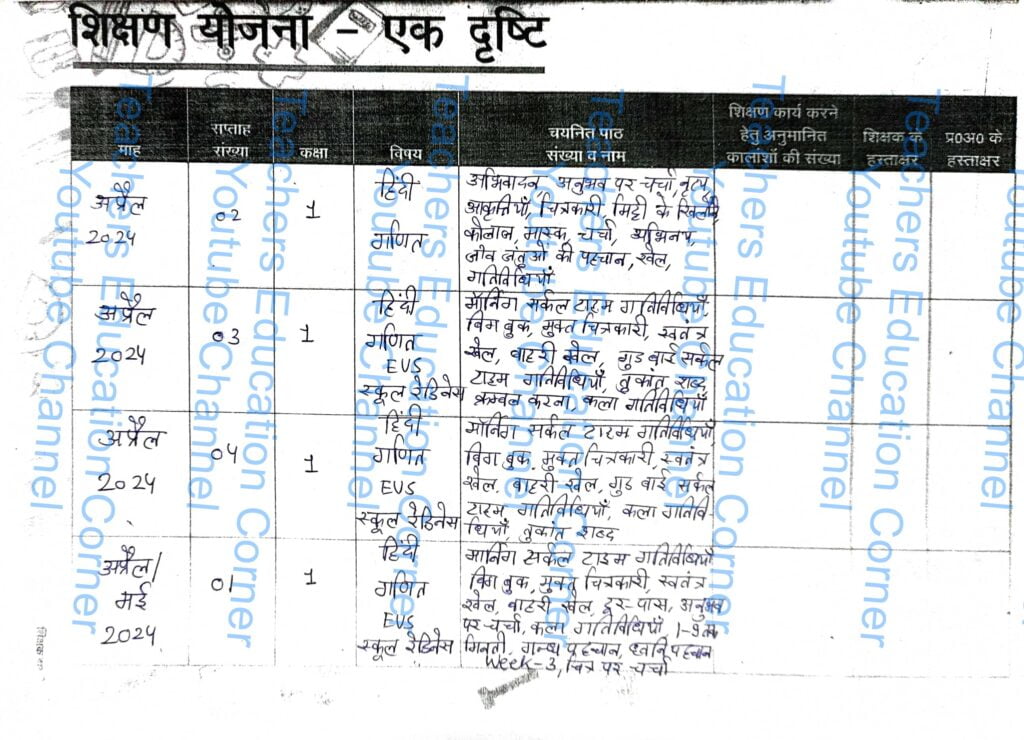 शिक्षण योजना - एक दृष्टि
माह
सप्ताह
संख्या
कक्षा
विषय
चयनित पाठ
संख्या व नाम
शिक्षण कार्य करने
हेतु अनुमानित
कालाशों की संख्या
शिक्षक के
हस्ताक्षर
प्र0अ0 के
हस्ताक्षर
अप्रैल
2024
02
1
हिंदी
गणित
अभिवादन अनुभव पर चर्चा, नृत्य,
आकृतियाँ, चित्रकारी, मिट्टी के खिलौने
कोलाज, मास्क, चर्चा, अभिनय,
जीव जंतुओं की पहचान, खेल,
गतिविधियाँ
अप्रैल
2024
03
1
हिंदी
गणित
EVS
स्कूल रेडिनेस
मॉर्निंग सर्कल टाइम गतिविधियाँ,
बिग बुक, मुक्त चित्रकारी, स्वतंत्र
खेल, बाहरी खेल, गुड बाई सर्कल
टाइम गतिविधियाँ, तुकांत शब्द,
क्रमबद्ध करना, कला गतिविधियाँ
अप्रैल
2024
04
1
हिंदी
गणित
EVS
स्कूल रेडिनेस
मॉर्निंग सर्कल टाइम गतिविधियाँ
बिग बुक, मुक्त चित्रकारी, स्वतंत्र
खेल, बाहरी खेल, गुड बाई सर्कल
टाइम गतिविधियाँ, कला गतिवि-
धियाँ, तुकांत शब्द
अप्रैल/
मई
2024
01
1
हिंदी
गणित
EVS
स्कूल रेडिनेस
मॉर्निंग सर्कल टाइम गतिविधियाँ
बिग बुक, मुक्त चित्रकारी, स्वतंत्र
खेल, बाहरी खेल, दूर-पास, अनुभव
पर चर्चा, कला गतिविधियाँ, 1-9 तक
गिनती, गन्ध पहचान, ध्वनि पहचान
Week-3, चित्र पर चर्चा
Teachers Education Corner
Youtube Channel
Teachers Education Corner
Youtube Channel
Teachers Education Corner
Youtube Channel
Teachers Education Corner
Youtube Channel
Teachers Education Corner
Youtube Channel
Teachers Education Corner